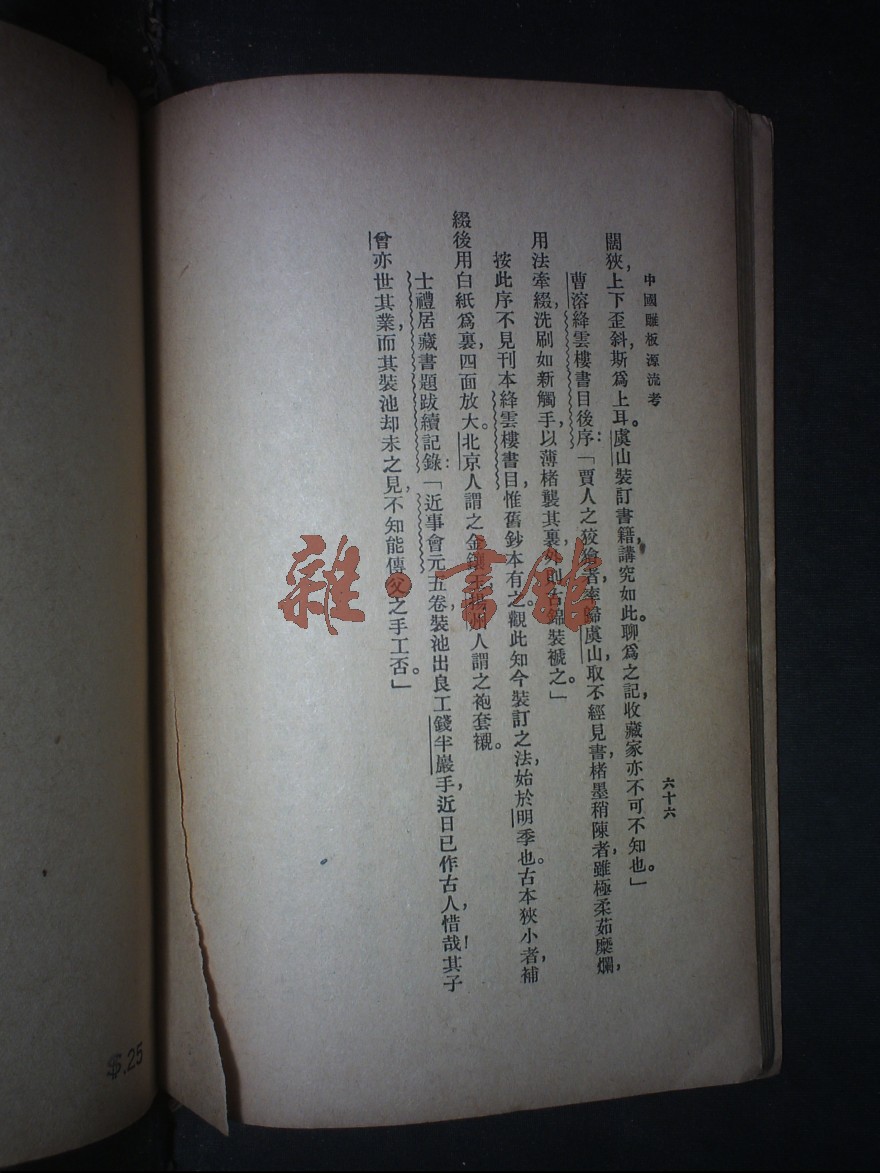 中國雕板源流考
六十六
闊狹，上下歪斜，斯爲上耳。虞山裝訂書籍，講究如此。聊爲之記，收藏家亦不可不知也。」
曹溶絳雲樓書目後序：「賈人之狡獪者，率歸虞山，取不經見書，楮墨稍陳者，雖極柔茹糜爛，
用法牽綴，洗刷如新觸手，以薄楮襲其裏，外則古錦裝褫之。」
按此序不見刊本絳雲樓書目，惟舊鈔本有之。觀此知今裝訂之法，始於明季也。古本狹小者，補
綴後用白紙爲裏，四面放大。北京人謂之金鑲玉，揚州人謂之袍套襯。
士禮居藏書題跋續記錄：「近事會元五卷，裝池出良工錢半巖手，近日已作古人，惜哉！其子
曾亦世其業，而其裝池却未之見，不知能傳父之手工否。」
雜·書館
$.25